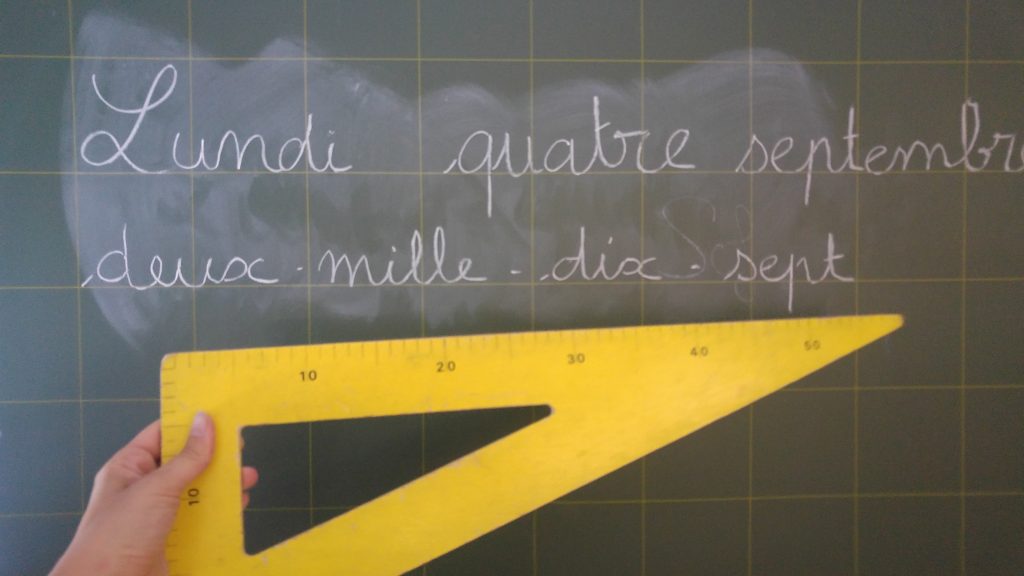 Lundi quatre septembre
deux-mille-dix-sept
10 20 30 40 50
10